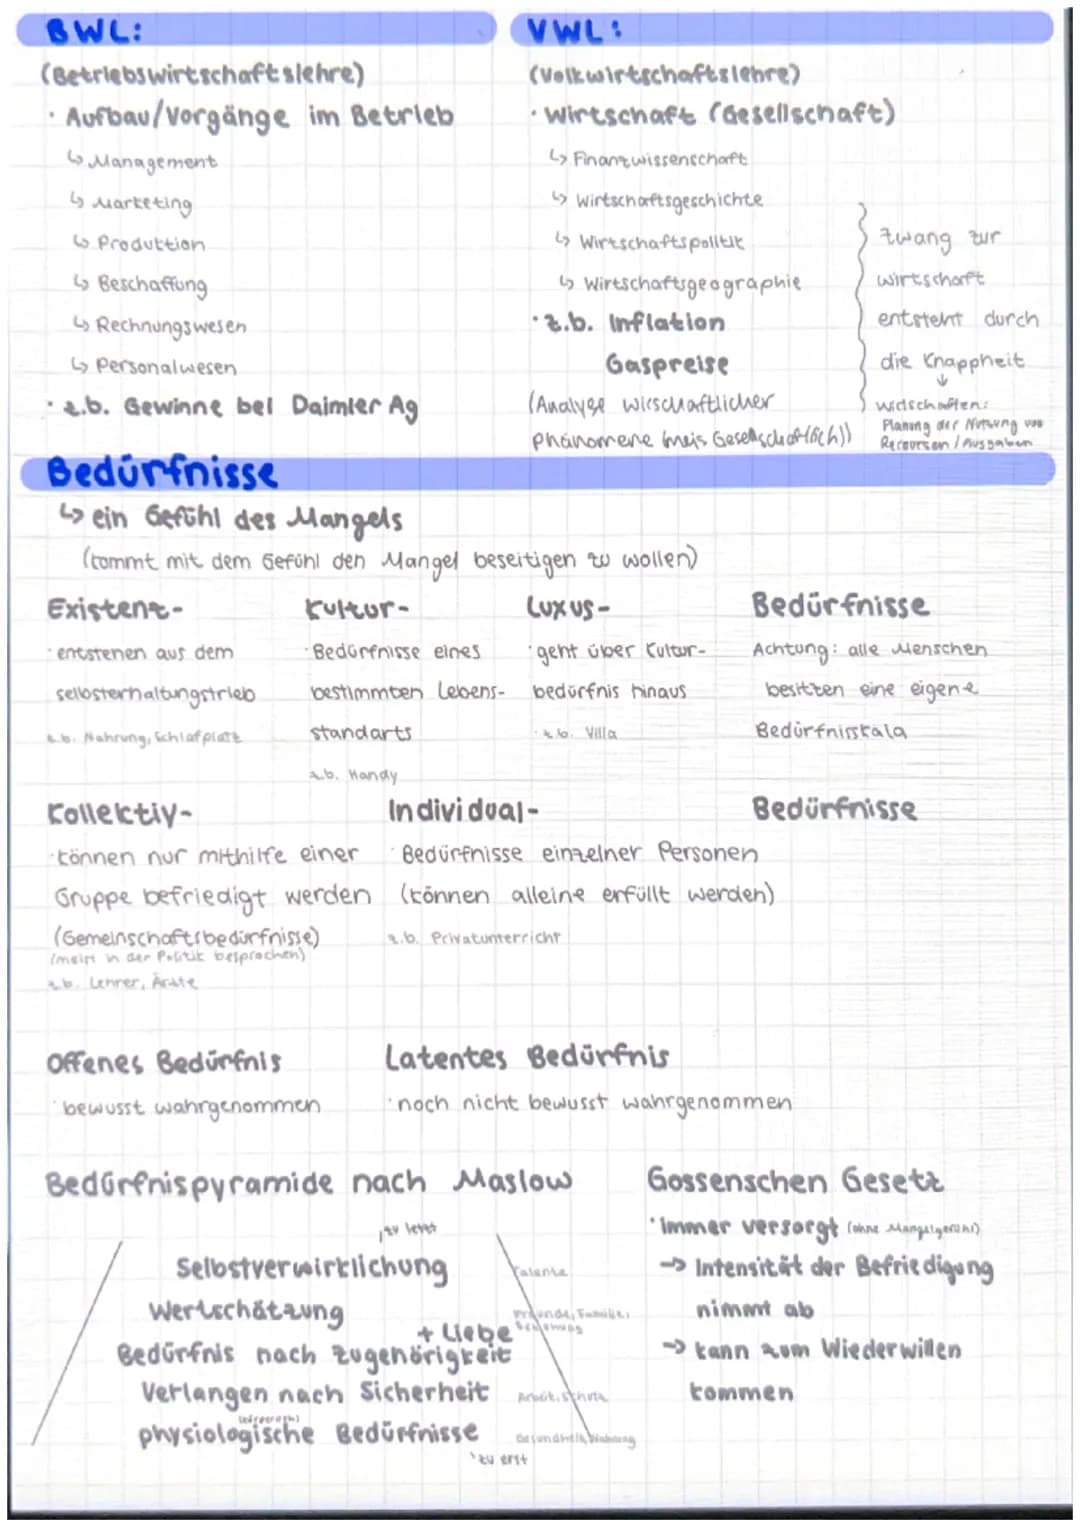 BWL:
(Betriebswirtschaftslehre)
· Aufbau/Vorgänge im Betrieb
↳ Management
↳ Marketing
↳ Produktion
↳ Beschaffung
↳ Rechnungswesen
↳ Personalwesen
· z.b. Gewinne bei Daimler Ag
VWL:
(Volkwirtschaftslehre)
· Wirtschaft (Gesellschaft)
↳ Finanzwissenschaft
↳ Wirtschaftsgeschichte
↳ Wirtschaftspolitik
↳ Wirtschaftsgeographie
· z.b. Inflation
Gaspreise
(Analyse wirschaftlicher
phänomene
Zwang zur
wirtschaft
entsteht durch
die Knappheit
↓
Planung der Nutzung von
/ Ausgaben
Bedürfnisse
↳ ein Gefühl des Mangels
(kommt mit dem Gefühl den Mangel beseitigen zu wollen)
Existenz-
· entstehen aus dem
selbsterhaltungstrieb
z.b. Nahrung, Schlafplatz
Kultur-
· Bedürfnisse eines
bestimmten Lebens-
standarts
z.b. Handy
Luxus-
· geht über Kultur-
bedürfnis hinaus
· z.b. Villa
Bedürfnisse
Achtung: alle Menschen
besitzen eine eigene
Bedürfnisskala
Kollektiv-
· können nur mithilfe einer
Gruppe befriedigt werden
(Gemeinschaftsbedürfnisse)
(meist in der Politik besprochen)
z.b. Lehrer, Ärzte
Individual-
· Bedürfnisse einzelner Personen
(können alleine erfüllt werden)
z.b. Privatunterricht
Bedürfnisse
Offenes Bedürfnis
· bewusst wahrgenommen
Latentes Bedürfnis
· noch nicht bewusst wahrgenommen
Bedürfnispyramide nach Maslow
zu letzt
Selbstverwirklichung
Talente
Wertschätzung
Freunde, Familie,
+ Liebe
Bedürfnis nach Zugehörigkeit
Verlangen nach Sicherheit
physiologische Bedürfnisse
Gesundheit, Nahrung
zu erst
Gossenschen Gesetz
· immer versorgt (ohne Mangelgefühl)
→ Intensität der Befriedigung
nimmt ab
→ kann zum Wiederwillen
kommen